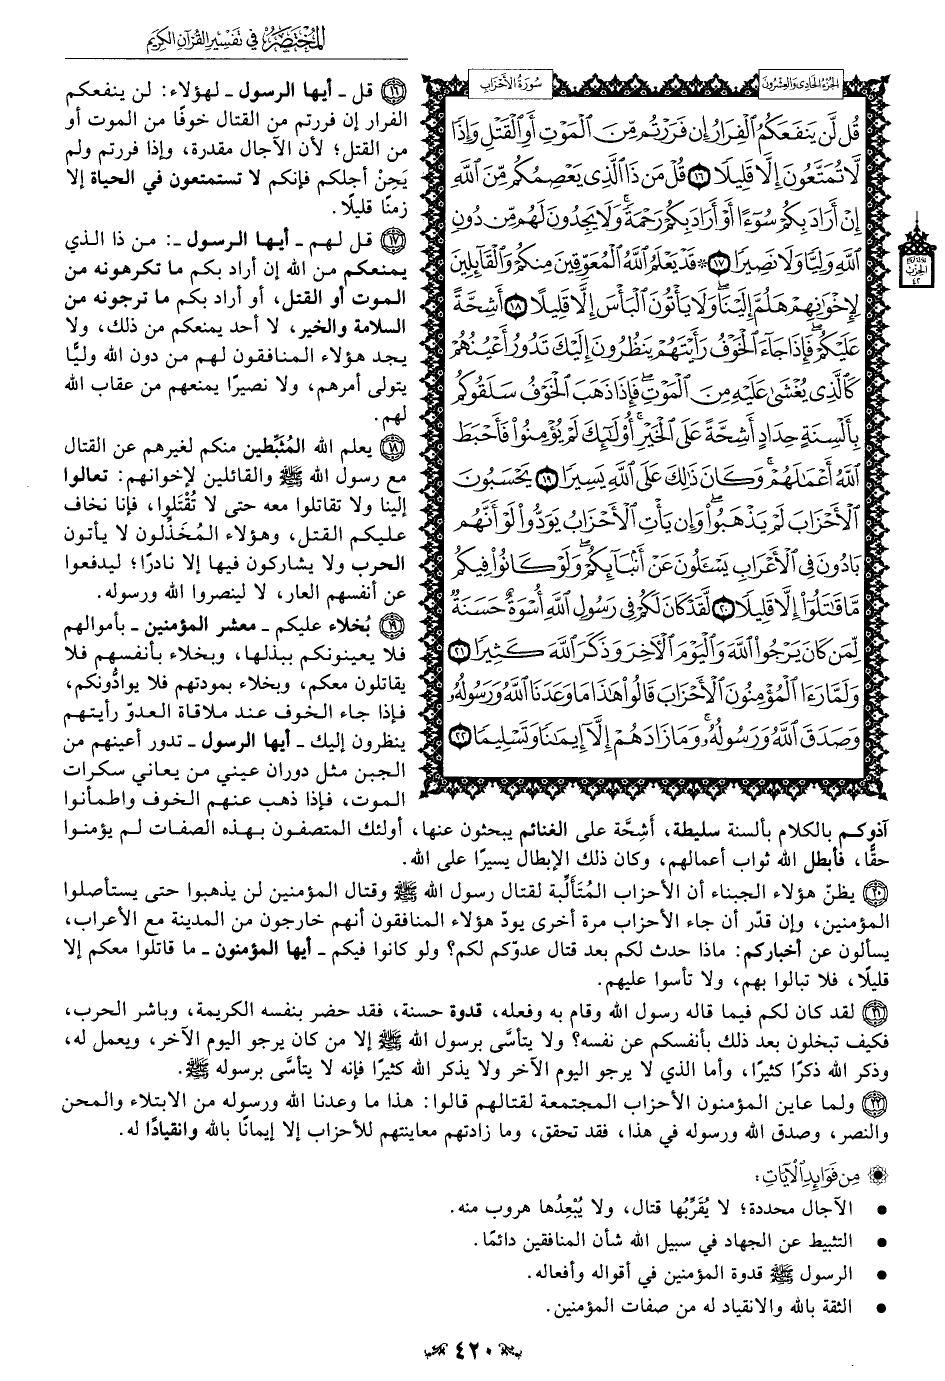 المختصر في تفسير القرآن الكريم
الجزء الحادي والعشرون
سورة الأحزاب
قُل لَّن يَنفَعَكُمُ ٱلۡفِرَارُ إِن فَرَرۡتُم مِّنَ ٱلۡمَوۡتِ أَوِ ٱلۡقَتۡلِ وَإِذٗا
لَّا تُمَتَّعُونَ إِلَّا قَلِيلٗا ١٦ قُلۡ مَن ذَا ٱلَّذِي يَعۡصِمُكُم مِّنَ ٱللَّهِ
إِنۡ أَرَادَ بِكُمۡ سُوٓءًا أَوۡ أَرَادَ بِكُمۡ رَحۡمَةٗۚ وَلَا يَجِدُونَ لَهُم مِّن دُونِ
ٱللَّهِ وَلِيّٗا وَلَا نَصِيرٗا ١٧ ۞ قَدۡ يَعۡلَمُ ٱللَّهُ ٱلۡمُعَوِّقِينَ مِنكُمۡ وَٱلۡقَآئِلِينَ
لِإِخۡوَٰنِهِمۡ هَلُمَّ إِلَيۡنَاۖ وَلَا يَأۡتُونَ ٱلۡبَأۡسَ إِلَّا قَلِيلًا ١٨ أَشِحَّةً
عَلَيۡكُمۡۖ فَإِذَا جَآءَ ٱلۡخَوۡفُ رَأَيۡتَهُمۡ يَنظُرُونَ إِلَيۡكَ تَدُورُ أَعۡيُنُهُمۡ
كَٱلَّذِي يُغۡشَىٰ عَلَيۡهِ مِنَ ٱلۡمَوۡتِۖ فَإِذَا ذَهَبَ ٱلۡخَوۡفُ سَلَقُوكُم
بِأَلۡسِنَةٍ حِدَادٍ أَشِحَّةً عَلَى ٱلۡخَيۡرِۚ أُوْلَٰٓئِكَ لَمۡ يُؤۡمِنُواْ فَأَحۡبَطَ
ٱللَّهُ أَعۡمَٰلَهُمۡۚ وَكَانَ ذَٰلِكَ عَلَى ٱللَّهِ يَسِيرٗا ١٩ يَحۡسَبُونَ
ٱلۡأَحۡزَابَ لَمۡ يَذۡهَبُواْۖ وَإِن يَأۡتِ ٱلۡأَحۡزَابُ يَوَدُّواْ لَوۡ أَنَّهُم
بَادُونَ فِي ٱلۡأَعۡرَابِ يَسۡـَٔلُونَ عَنۡ أَنۢبَآئِكُمۡۖ وَلَوۡ كَانُواْ فِيكُم
مَّا قَٰتَلُوٓاْ إِلَّا قَلِيلٗا ٢٠ لَّقَدۡ كَانَ لَكُمۡ فِي رَسُولِ ٱللَّهِ أُسۡوَةٌ حَسَنَةٞ
لِّمَن كَانَ يَرۡجُواْ ٱللَّهَ وَٱلۡيَوۡمَ ٱلۡأٓخِرَ وَذَكَرَ ٱللَّهَ كَثِيرٗا ٢١
وَلَمَّا رَءَا ٱلۡمُؤۡمِنُونَ ٱلۡأَحۡزَابَ قَالُواْ هَٰذَا مَا وَعَدَنَا ٱللَّهُ وَرَسُولُهُۥ
وَصَدَقَ ٱللَّهُ وَرَسُولُهُۥۚ وَمَا زَادَهُمۡ إِلَّآ إِيمَٰنٗا وَتَسۡلِيمٗا ٢٢
الحزب
٤٢
١٦ قل ـ أيها الرسول ـ لهؤلاء: لن ينفعكم
الفرار إن فررتم من القتال خوفًا من الموت أو
من القتل؛ لأن الآجال مقدرة، وإذا فررتم ولم
يَحِنْ أجلكم فإنكم لا تستمتعون في الحياة إلا
زمنًا قليلًا.
١٧ قل لهم ـ أيها الرسول ـ: من ذا الذي
يمنعكم من الله إن أراد بكم ما تكرهونه من
الموت أو القتل، أو أراد بكم ما ترجونه من
السلامة والخير، لا أحد يمنعكم من ذلك، ولا
يجد هؤلاء المنافقون لهم من دون الله وليًّا
يتولى أمرهم، ولا نصيرًا يمنعهم من عقاب الله
لهم.
١٨ يعلم الله المُثَبِّطين منكم لغيرهم عن القتال
مع رسول الله ﷺ والقائلين لإخوانهم: تعالوا
إلينا ولا تقاتلوا معه حتى لا تُقْتَلوا، فإنا نخاف
عليكم القتل، وهؤلاء المُخَذِّلون لا يأتون
الحرب ولا يشاركون فيها إلا نادرًا؛ ليدفعوا
عن أنفسهم العار، لا لينصروا الله ورسوله.
١٩ بُخلاء عليكم ـ معشر المؤمنين ـ بأموالهم
فلا يعينونكم ببذلها، وبخلاء بأنفسهم فلا
يقاتلون معكم، وبخلاء بمودتهم فلا يوادُّونكم،
فإذا جاء الخوف عند ملاقاة العدوّ رأيتهم
ينظرون إليك ـ أيها الرسول ـ تدور أعينهم من
الجبن مثل دوران عيني من يعاني سكرات
الموت، فإذا ذهب عنهم الخوف واطمأنوا
آذوكم بالكلام بألسنة سليطة، أَشِحَّة على الغنائم يبحثون عنها، أولئك المتصفون بهذه الصفات لم يؤمنوا
حقًّا، فأبطل الله ثواب أعمالهم، وكان ذلك الإبطال يسيرًا على الله.
٢٠ يظنّ هؤلاء الجبناء أن الأحزاب المُتَأَلِّبة لقتال رسول الله ﷺ وقتال المؤمنين لن يذهبوا حتى يستأصلوا
المؤمنين، وإن قدّر أن جاء الأحزاب مرة أخرى يودّ هؤلاء المنافقون أنهم خارجون من المدينة مع الأعراب،
يسألون عن أخباركم: ماذا حدث لكم بعد قتال عدوّكم لكم؟ ولو كانوا فيكم ـ أيها المؤمنون ـ ما قاتلوا معكم إلا
قليلًا، فلا تبالوا بهم، ولا تأسوا عليهم.
٢١ لقد كان لكم فيما قاله رسول الله وقام به وفعله، قدوة حسنة، فقد حضر بنفسه الكريمة، وباشر الحرب،
فكيف تبخلون بعد ذلك بأنفسكم عن نفسه؟ ولا يتأسَّى برسول الله ﷺ إلا من كان يرجو اليوم الآخر، ويعمل له،
وذكر الله ذكرًا كثيرًا، وأما الذي لا يرجو اليوم الآخر ولا يذكر الله كثيرًا فإنه لا يتأسَّى برسوله ﷺ.
٢٢ ولما عاين المؤمنون الأحزاب المجتمعة لقتالهم قالوا: هذا ما وعدنا الله ورسوله من الابتلاء والمحن
والنصر، وصدق الله ورسوله في هذا، فقد تحقق، وما زادتهم معاينتهم للأحزاب إلا إيمانًا بالله وانقيادًا له.
من فوائد الآيات:
• الآجال محددة؛ لا يُقَرِّبُها قتال، ولا يُبْعِدُها هروب منه.
• التثبيط عن الجهاد في سبيل الله شأن المنافقين دائمًا.
• الرسول ﷺ قدوة المؤمنين في أقواله وأفعاله.
• الثقة بالله والانقياد له من صفات المؤمنين.
٤٢٠